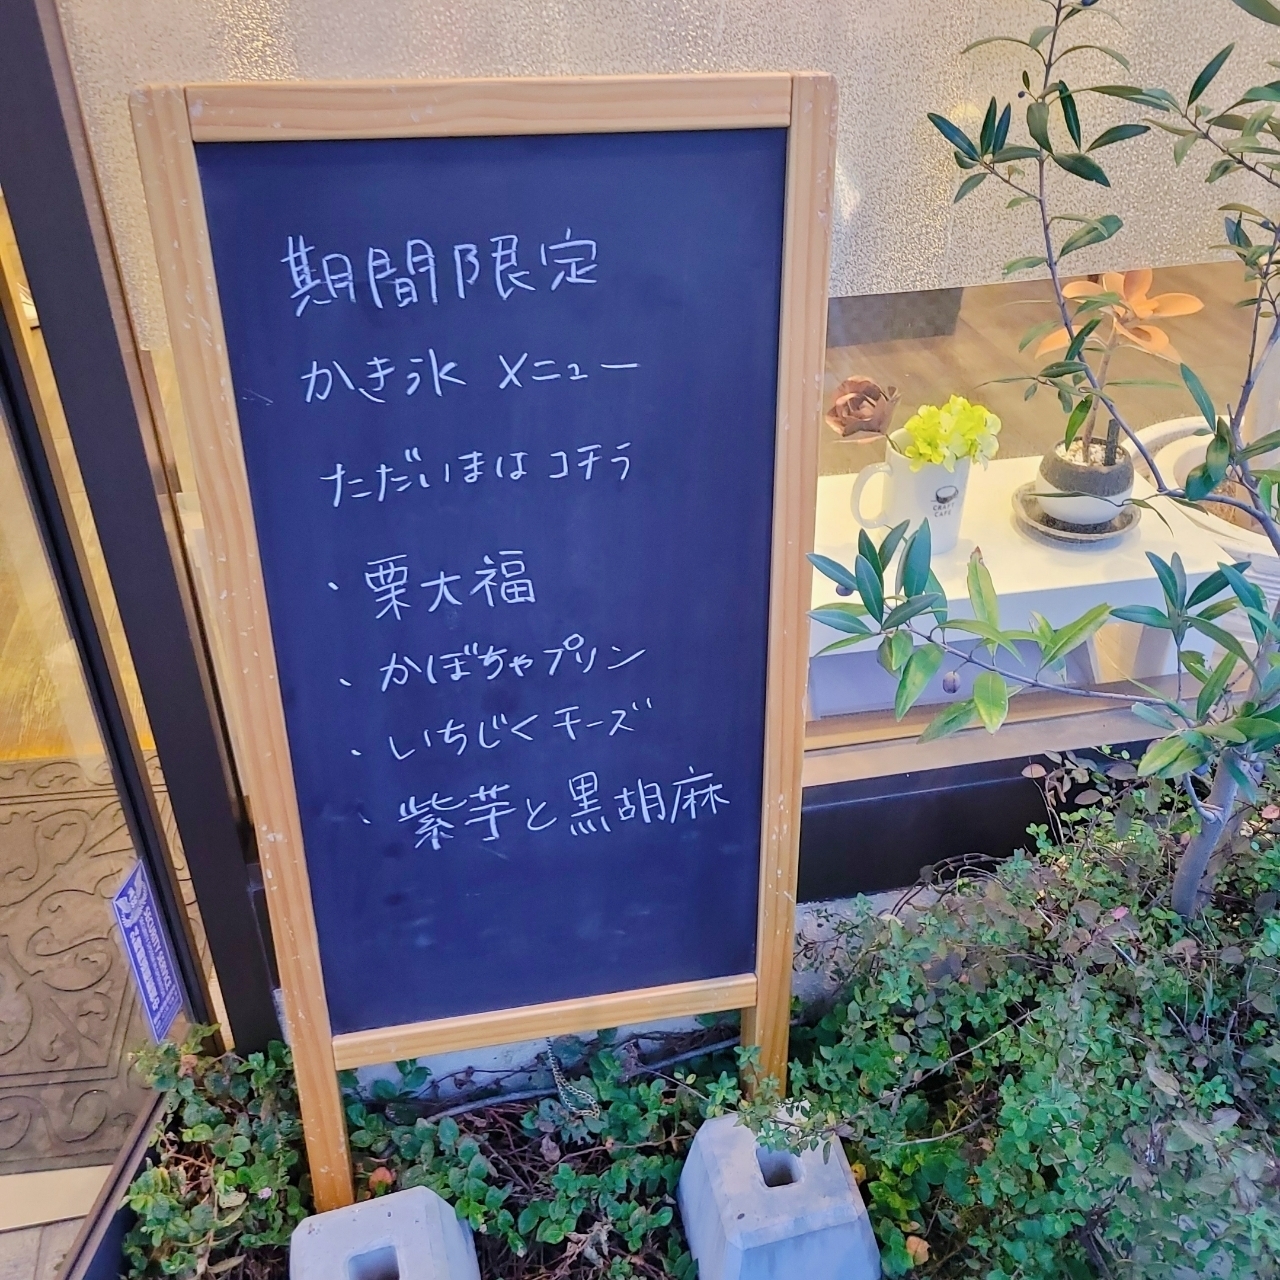 期間限定
かき氷 メニュー
ただいまは コチラ
・栗大福
・かぼちゃプリン
・いちじくチーズ
・紫芋と黒胡麻
CRAFT
CAFE
SECURITY SERVICE